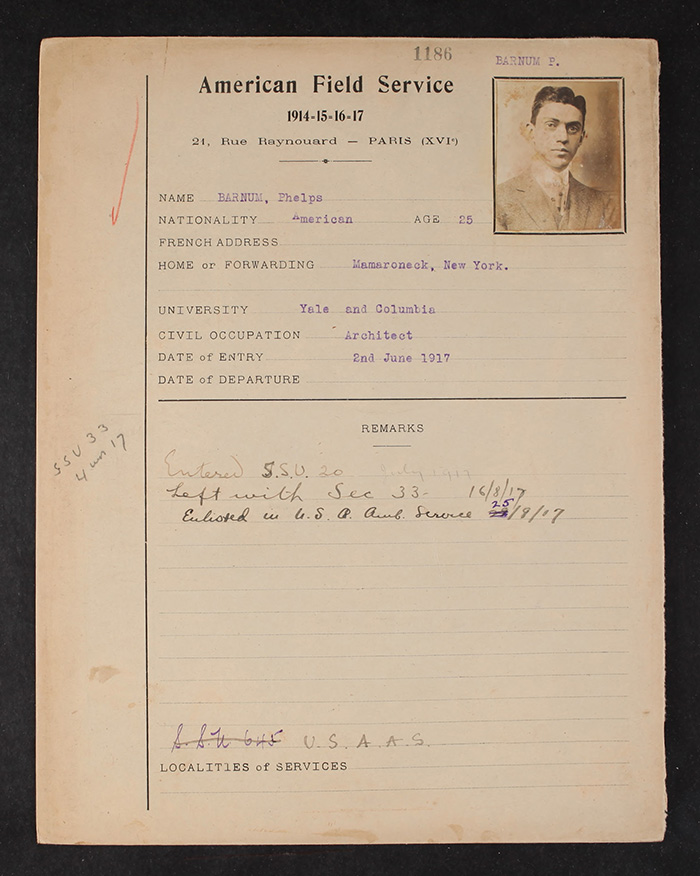 1186
BARNUM P.
American Field Service
1914-15-16-17
21, Rue Raynouard — PARIS (XVIe)
NAME BARNUM, Phelps
NATIONALITY American AGE 25
FRENCH ADDRESS
HOME or FORWARDING Mamaroneck, New York.
UNIVERSITY Yale and Columbia
CIVIL OCCUPATION Architect
DATE of ENTRY 2nd June 1917
DATE of DEPARTURE
REMARKS
SSU 33
4 un 17
Entered S.S.U. 20 July 1917
Left with Sec 33- 16/8/17
Enlisted in U.S.A. Amb. Service 25/9/17
S.S.U 645 U.S.A.A.S.
LOCALITIES of SERVICES